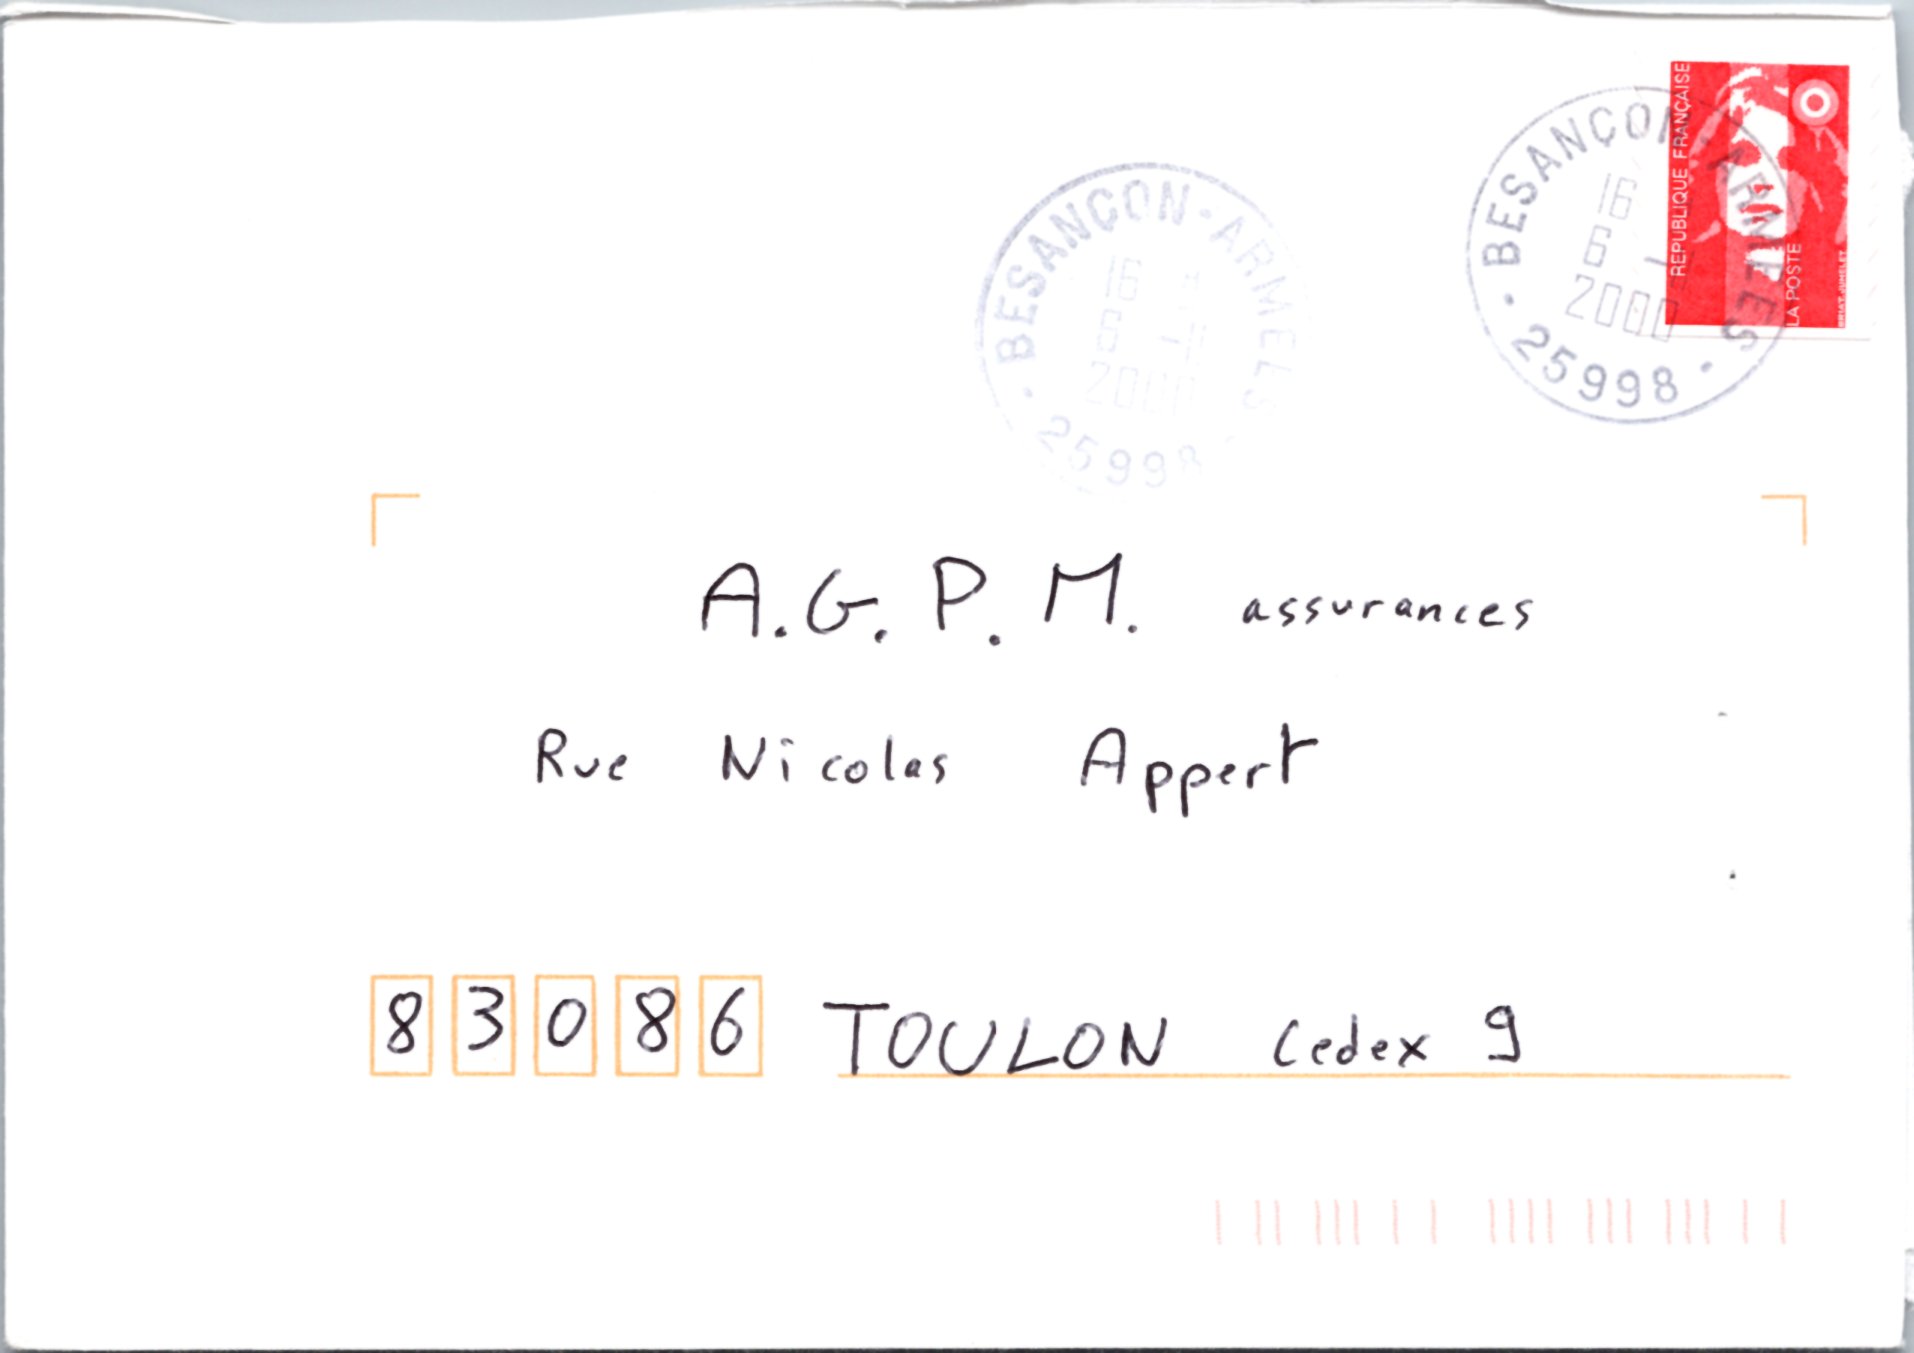 REPUBLIQUE FRANÇAISE
LA POSTE
BESANÇON-ARMEES
16
6
2000
25998
BESANÇON-ARMEES
16
6
2000
25998
A.G.P.M. assurances
Rue Nicolas Appert
83086 TOULON Cedex 9